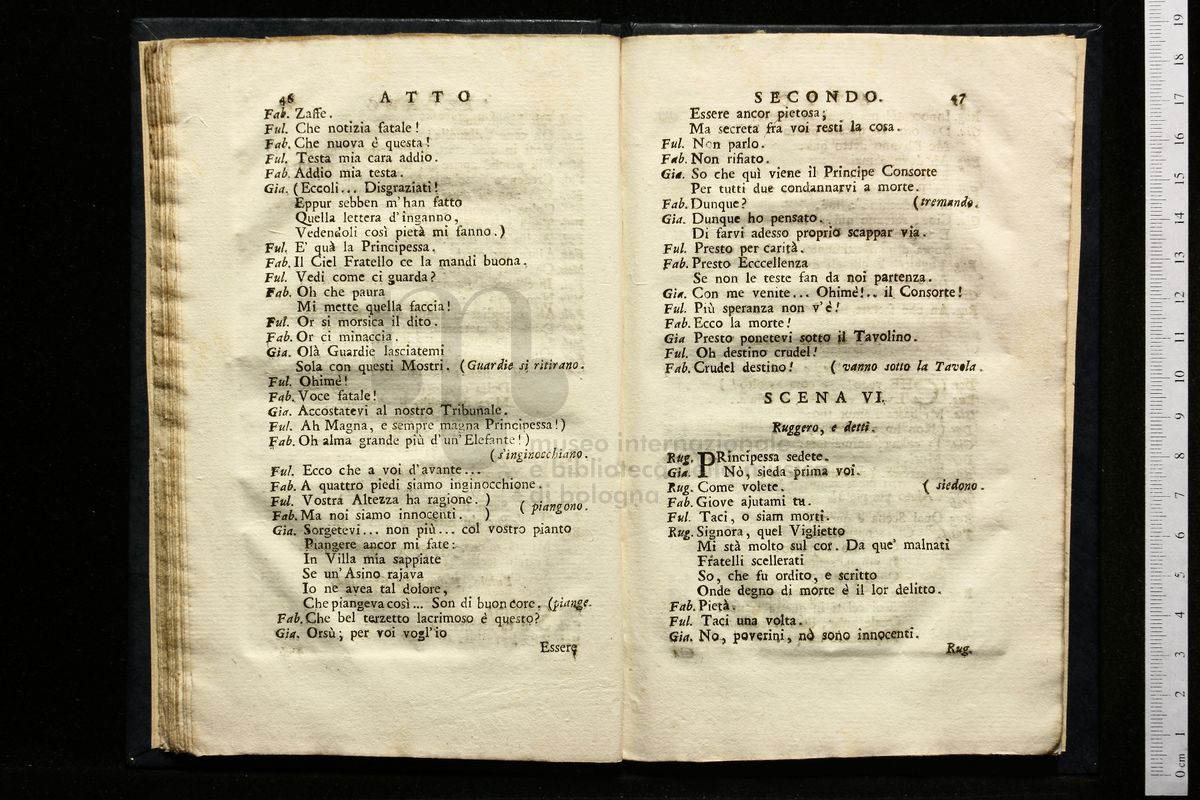 46 ATTO
Fab. Zaffe.
Ful. Che notizia fatale!
Fab. Che nuova è questa!
Ful. Testa mia cara addio.
Fab. Addio mia testa.
Gia. (Eccoli... Disgraziati!
Eppur sebben m'han fatto
Quella lettera d'inganno,
Vedendoli così pietà mi fanno.)
Ful. E' quà la Principessa.
Fab. Il Ciel Fratello ce la mandi buona.
Ful. Vedi come ci guarda?
Fab. Oh che paura
Mi mette quella faccia!
Ful. Or si morsica il dito.
Fab. Or ci minaccia.
Gia. Olà Guardie lasciatemi
Sola con questi Mostri. (Guardie si ritirano.
Ful. Ohimè!
Fab. Voce fatale!
Gia. Accostatevi al nostro Tribunale.
Ful. Ah Magna, e sempre magna Principessa!)
Fab. Oh alma grande più d'un'Elefante!)
(s'inginocchiano.
Ful. Ecco che a voi d'avante...
Fab. A quattro piedi siamo inginocchione.
Ful. Vostra Altezza ha ragione. )
Fab. Ma noi siamo innocenti. ) ( piangono.
Gia. Sorgetevi... non più... col vostro pianto
Piangere ancor mi fate:
In Villa mia sappiate
Se un'Asino rajava
Io ne avea tal dolore,
Che piangeva così... Son di buon core. (piange.
Fab. Che bel terzetto lacrimoso è questo?
Gia. Orsù; per voi vogl'io
Essere
SECONDO. 47
Essere ancor pietosa;
Ma secreta fra voi resti la cosa.
Ful. Non parlo.
Fab. Non rifiato.
Gia. So che quì viene il Principe Consorte
Per tutti due condannarvi a morte.
Fab. Dunque? (tremando.
Gia. Dunque ho pensato.
Di farvi adesso proprio scappar via.
Ful. Presto per carità.
Fab. Presto Ecccellenza
Se non le teste fan da noi partenza.
Gia. Con me venite... Ohimè!.. il Consorte!
Ful. Più speranza non v'è!
Fab. Ecco la morte!
Gia Presto ponetevi sotto il Tavolino.
Ful. Oh destino crudel!
Fab. Crudel destino! ( vanno sotto la Tavola.
SCENA VI.
Ruggero, e detti.
Rug. PRincipessa sedete.
Gia. Nò, sieda prima voi.
Rug. Come volete. ( siedono.
Fab. Giove ajutami tu.
Ful. Taci, o siam morti.
Rug. Signora, quel Viglietto
Mi stà molto sul cor. Da que' malnati
Fratelli scellerati
So, che fu ordito, e scritto
Onde degno di morte è il lor delitto.
Fab. Pietà.
Ful. Taci una volta.
Gia. No, poverini, nò sono innocenti.
Rug.
museo internazionale
e biblioteca
di bologna
0 cm 1 2 3 4 5 6 7 8 9 10 11 12 13 14 15 16 17 18 19